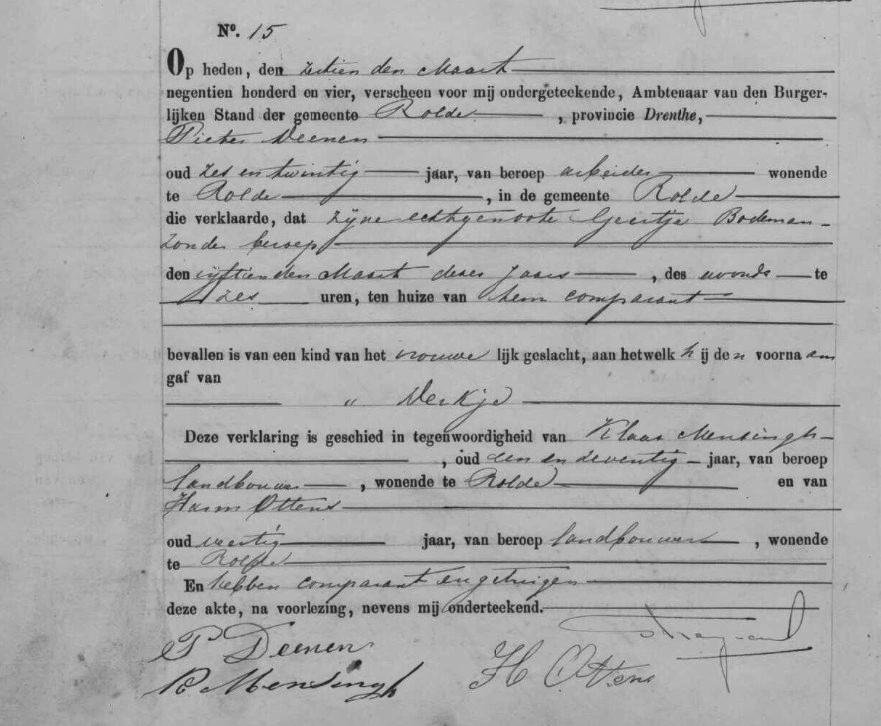 N°. 15
Op heden, den zestien den Maart
negentien honderd en vier, verscheen voor mij ondergeteekende, Ambtenaar van den Burger-
lijken Stand der gemeente Rolde, provincie Drenthe,
Pieter Deenen
oud zes en twintig jaar, van beroep arbeider wonende
te Rolde, in de gemeente Rolde
die verklaarde, dat zijne echtgenoote Geertje Bodeman
zonder beroep
den vijftienden Maart dezes jaars, des avonds te
zes uren, ten huize van hem comparant
bevallen is van een kind van het vrouwelijk geslacht, aan hetwelk hij den voornaam
gaf van
" Derkje
Deze verklaring is geschied in tegenwoordigheid van Klaas Mensingh
, oud een en zeventig jaar, van beroep
landbouwer, wonende te Rolde en van
Harm Ottens
oud veertig jaar, van beroep landbouwer, wonende
te Rolde
En hebben comparant en getuigen
deze akte, na voorlezing, nevens mij onderteekend.
P Deenen
K. Mensingh H Ottens